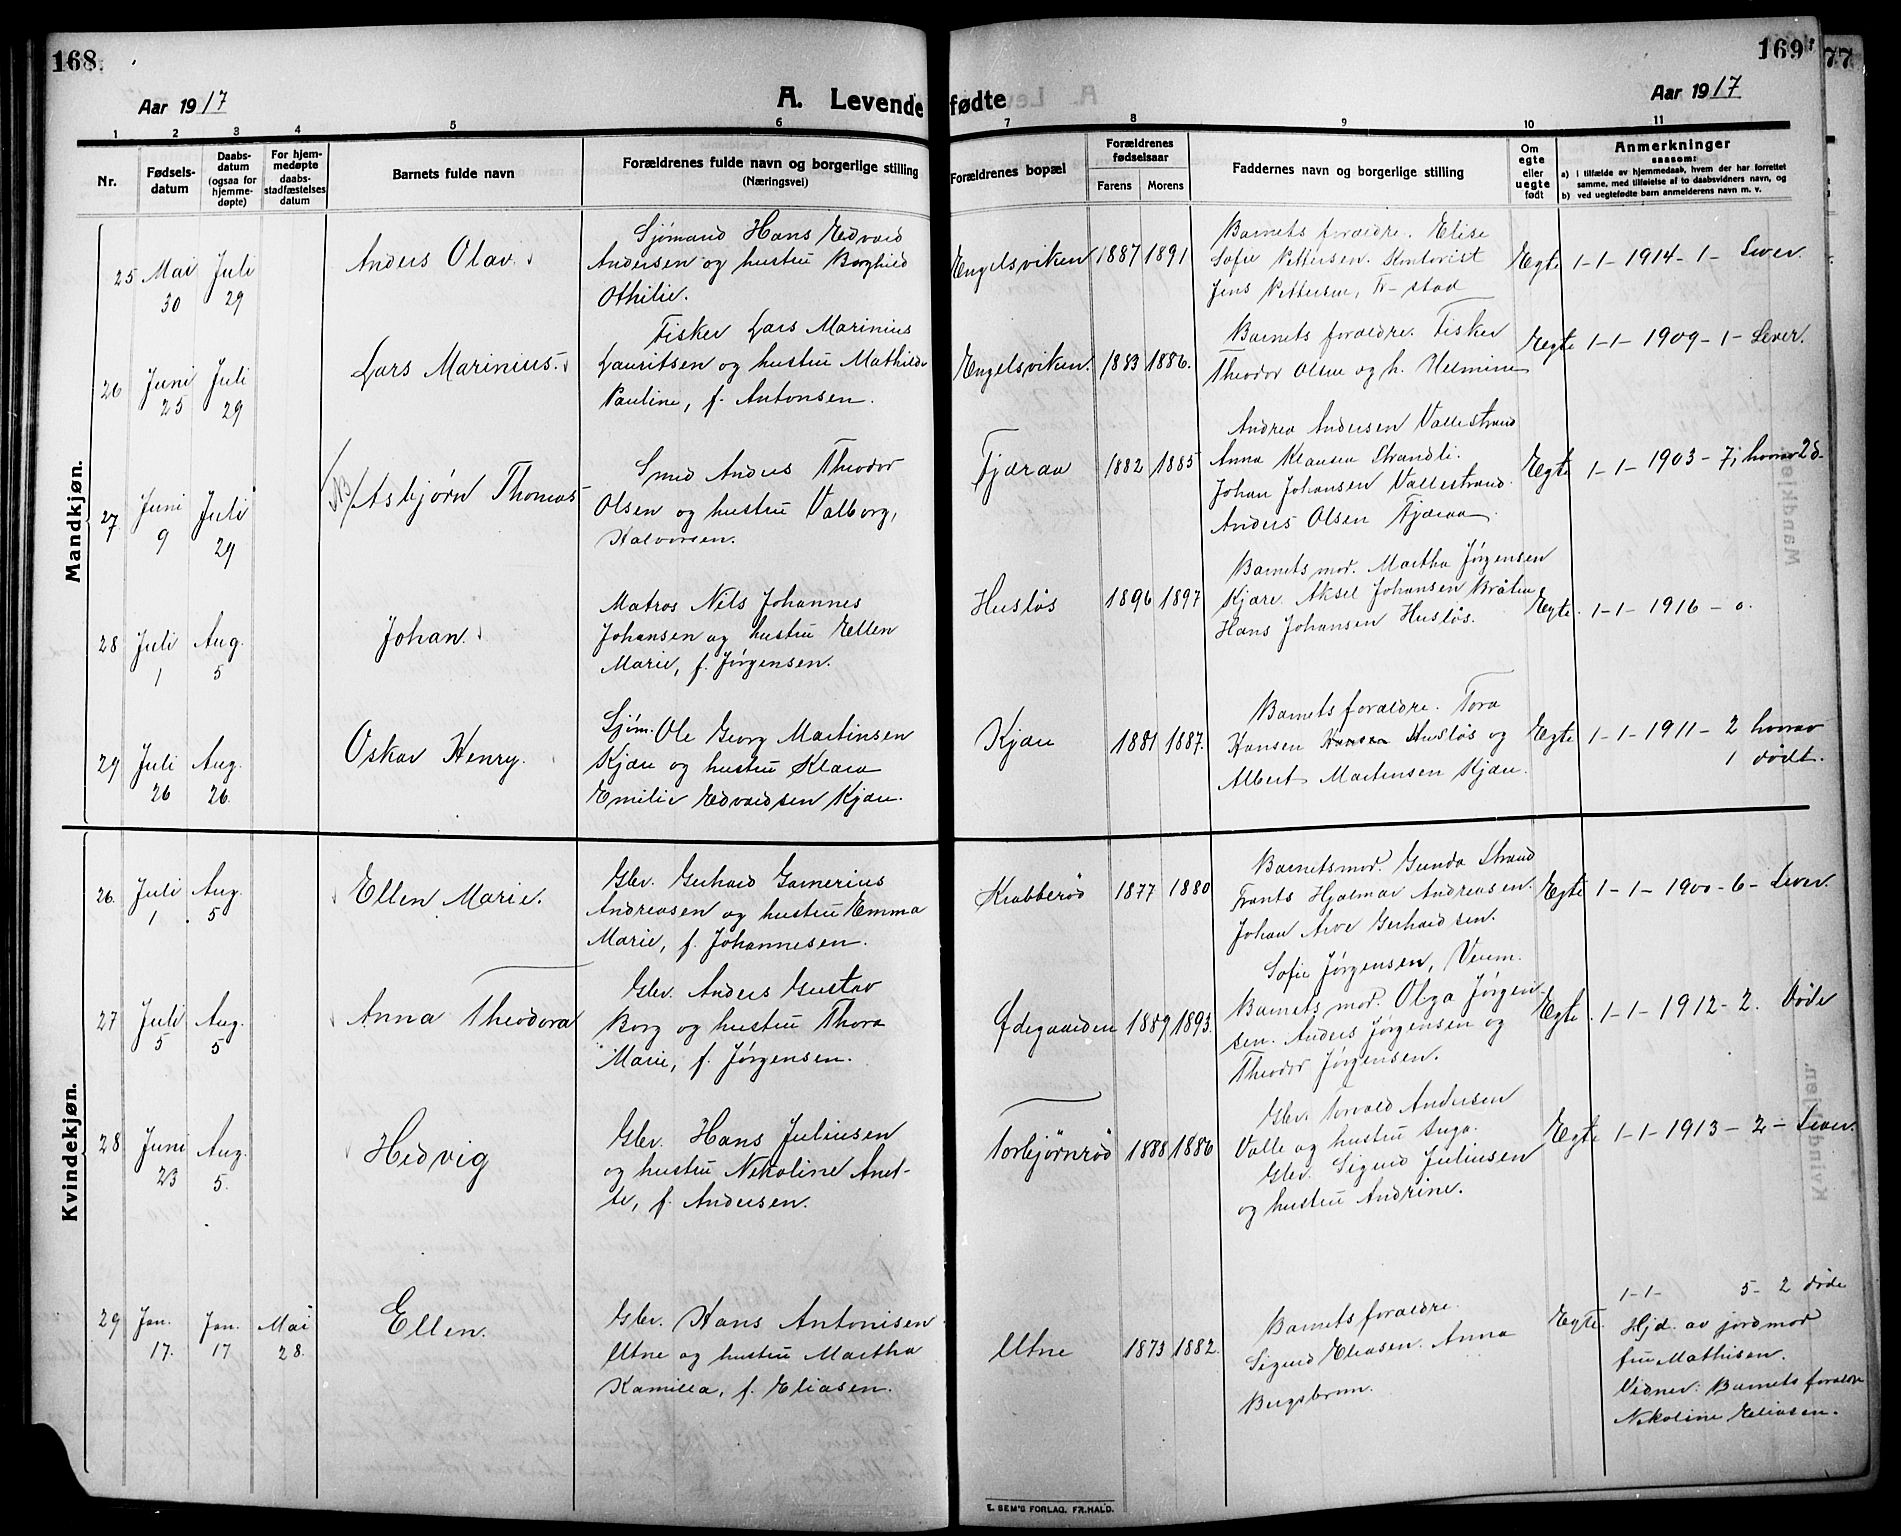 168.
169
77
Aar 1917
A. Levende fødte
Aar 1917
1 2 3 4 5 6 7 8 9 10 11
Nr.
Fødselsdatum
Daabsdatum (ogsaa for hjemmedøpte)
For hjemmedøpte daabsstadfæstelses datum
Barnets fulde navn
Forældrenes fulde navn og borgerlige stilling
(Næringsvei)
Forældrenes bopæl
Forældrenes fødselsaar
Farens
Morens
Faddernes navn og borgerlige stilling
Om egte eller uegte født
Anmerkninger
saasom:
a) i tilfælde av hjemmedaab, hvem der har forrettet
samme, med tilføielse af to daabsvidners navn, og
b) ved uegtefødte barn anmelderens navn m. v.
Mandkjøn.
25 Mai 30 Juli 29
Anders Olav.
Sjømand Hans Edvard
Andersen og hustru Borghild
Othilie.
Engelsviken 1887 1891
Barnets foraldre. Elise
Sofie Pettersen. Kontorist
Jens Pettersen, Fr-stad
Egte 1-1-1914-1- Lever.
26 Juni 25 Juli 29
Lars Marinius.
Fisker Lars Marinius
Lauritsen og hustru Mathilde
Pauline, f. Antonsen.
Engelsviken. 1883 1886.
Barnets foraldre. Fisker
Theodor Olsen og h. Helmine
Egte 1-1-1909-1- Lever.
27 Juni 9 Juli 29
NB/ Asbjørn Thomas
Smed Anders Theodor
Olsen og hustru Valborg,
Halvorsen.
Fjæraa 1882 1885
Andrea Andersen Vallestrand
Anna Klausen Strandli.
Johan Johansen Vallestrand.
Anders Olsen Fjæraa.
Egte 1-1-1903-7; hvorav 2 d.
28 Juli 1 Aug. 5
Johan.
Matros Nils Johannes
Johansen og hustru Ellen
Marie, f. Jørgensen.
Husløs 1896 1897
Barnets mor. Martha Jørgensen
Kjære. Aksel Johansen Bråten
Hans Johansen Husløs.
Egte. 1-1-1916-0.
29 Juli 26 Aug. 26.
Oskar Henry.
Sjøm. Ole Georg Martinsen
Kjære og hustru Klara
Emilie Edvardsen Kjære.
Kjære 1881 1887.
Barnets foraldre. Tora
Hansen Hansen Husløs og
Albert Martinsen Kjære.
Egte 1-1-1911-2 hvorav
1 dødt.
Kvindekjøn.
26. Juli 1 Aug. 5
Ellen Marie.
Gbr. Gerhard Gamerius
Andreasen og hustru Emma
Marie, f. Johannesen.
Krabberød 1877 1880
Barnets mor. Gunda Strand
Frants Hjalmar Andreasen.
Johan Arve Gerhardsen.
Egte 1-1-1900-6- Lever.
27 Juli 5 Aug. 5
Anna Theodora
Gbr. Anders Gustav
Borg og hustru Thora
Marie, f. Jørgensen.
Ødegaarden 1889 1893.
Sofie Jørgensen, Veum.
Barnets mor. Olga Jørgen-
sen. Anders Jørgensen og
Theodor Jørgensen.
Egte. 1-1-1912-2. Døde
28 Juni 23 Aug. 5.
Hedvig
Gbr. Hans Juliusen
og hustru Nikoline Anet-
te, f. Andersen.
Torbjørnrød 1888 1886
Gbr. Torvald Andersen
Valle og hustru Inga.
Gbr. Sigurd Juliusen
og hustru Andrine.
Egte 1-1-1913-2- Lever.
29 Jan. 17. Jan. 17 Mai 28.
Ellen.
Gbr. Hans Antonisen
Utne og hustru Martha
Kamilla, f. Eliasen.
Utne 1873 1882.
Barnets foraldre.
Sigurd Eliasen. Anna
Bergsbrun.
Egte. 1-1- 5- 2 døde
Hjd. av jordmor
fru Mathisen.
Vidner: Barnets foraldre
Nikoline Eliasen.
E. SEM'S FORLAG, FR.HALD.